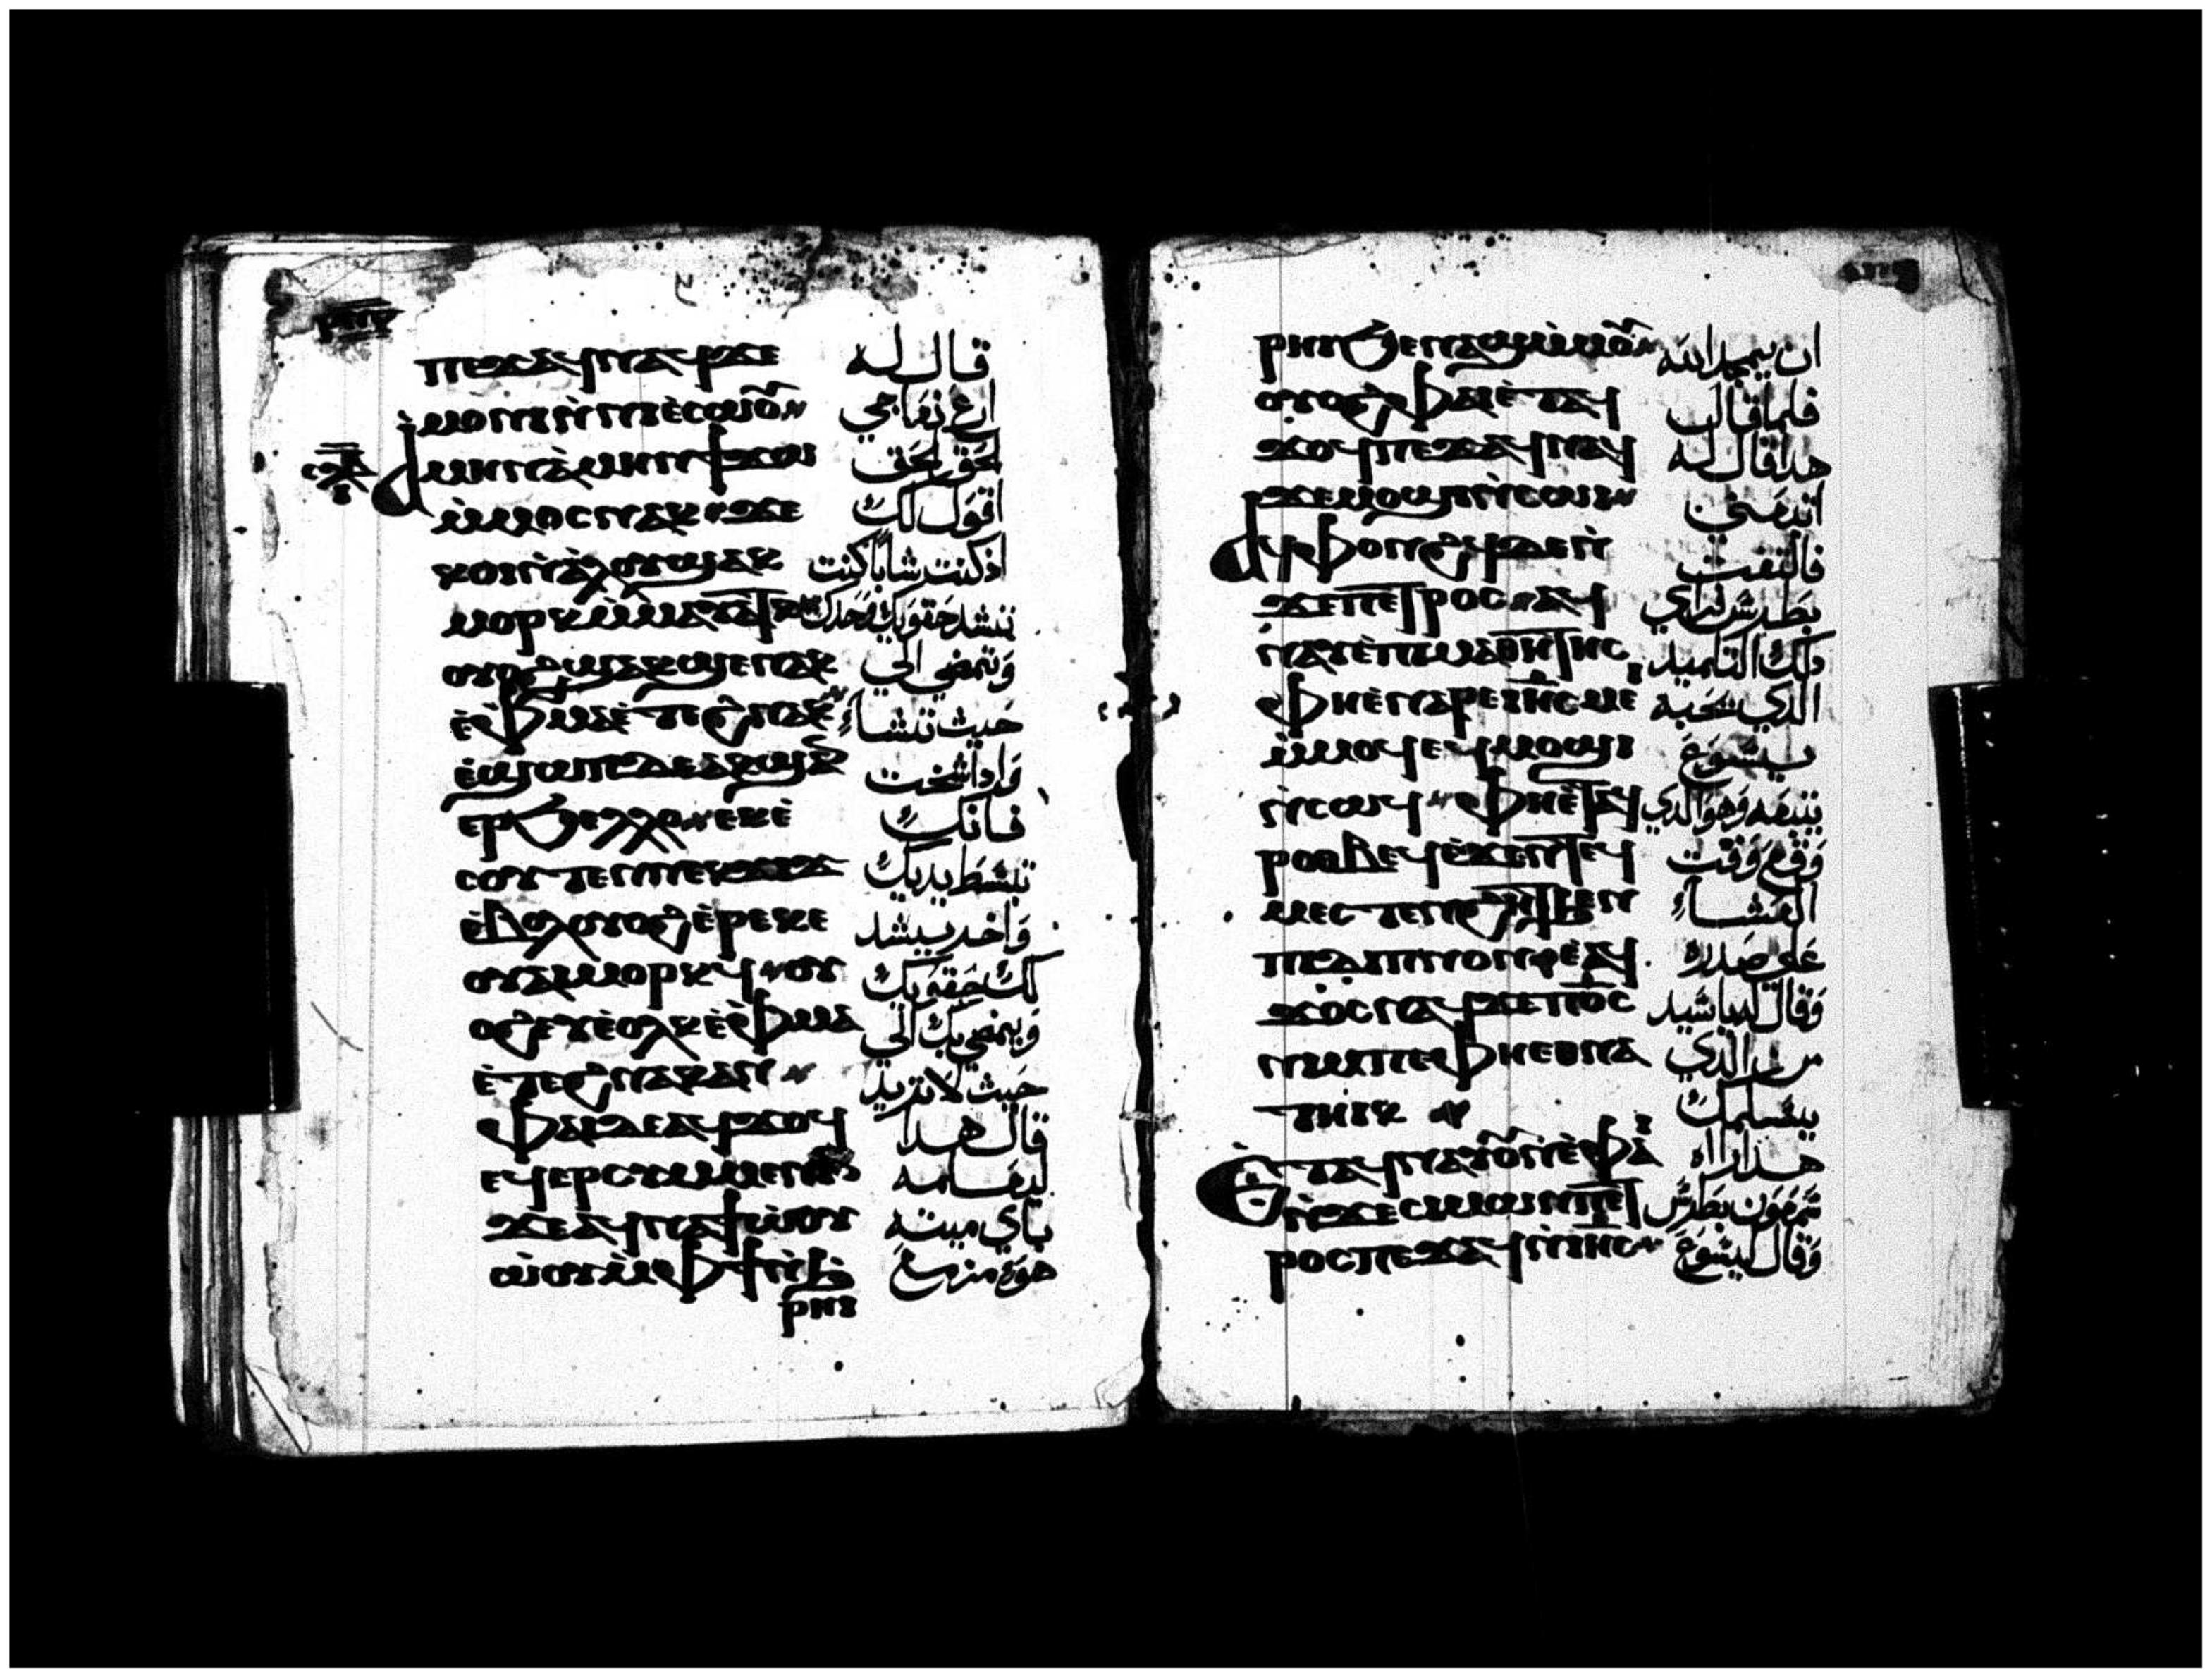 ⲡⲉϫⲁϥ ⲛⲁϥ ϫⲉ قال له
ⲁⲙⲟⲛⲓ ⲛ̀ⲛⲁⲉ̀ⲥⲱⲟⲩ ارع نعاجي
ⲁ̀ⲙⲏⲛ ⲁ̀ⲙⲏⲛ ϯϫⲱ الحق الحق
ⲙ̀ⲙⲟⲥ ⲛⲁⲕ ϫⲉ اقول لك
ⲕⲟⲓ ⲛ̀ⲁ̀ⲗⲟⲩ ϣⲁⲕ اذ كنت شابا كنت
ⲙⲟⲣⲕ ⲙ̀ⲙⲁⲩⲁⲧⲕ تشد حقويك وحدك
ⲟⲩⲟϩ ϣⲁⲕϣⲉ ⲛⲁⲕ وتمضي الي
ⲉ̀ⲫⲙⲁ ⲉ̀ⲧⲉϩⲛⲁⲕ حيث تشاء
ⲉ̀ϣⲱⲡ ⲇⲉ ⲁⲕϣⲁⲛ واذا شخت
ⲉⲣϧⲉⲗⲗⲟ ⲉⲕⲉ̀ فانك
ⲥⲟⲩⲧⲉⲛ ⲛⲉⲕϫⲓϫ تبسط يديك
ⲉ̀ⲃⲟⲗ ⲟⲩⲟϩ ⲉ̀ⲣⲉ ⲕⲉ واخر يشد
ⲟⲩⲁⲓ ⲙⲟⲣⲕϥ ⲟⲩ لك حقويك
ⲟϩ ⲉⲩⲉ̀ⲟⲗⲕ ⲉ̀ⲫⲙⲁ ويمضي بك الي
ⲉ̀ⲧⲉϩⲛⲁⲕ ⲁⲛ حيث لا تريد
ⲫⲁⲓ ⲇⲉ ⲁϥϫⲟϥ قال هدا
ⲉϥⲉⲣⲥⲩⲙⲙⲉⲛⲓⲛ ليعلمه
ϫⲉ ⲁϥⲛⲁϯⲱ̀ⲟⲩ باي ميته
ⲱ̀ⲟⲩ ⲙ̀ⲫϯ ⲛ̀ϧ هو مزمع
ⲣⲏⲓ
ⲣⲏⲓ ϧⲉⲛ ⲁϣ ⲙ̀ⲙⲟⲩ ان يمجد الله
ⲟⲩⲟϩ ⲫⲁⲓ ⲉ̀ⲧⲁϥ فلما قال
ϫⲟϥ ⲡⲉϫⲁϥ ⲛⲁϥ هدا قال له
ϫⲉ ⲙⲟϣⲓ ⲛ̀ⲥⲱⲓ اتبعني
ⲁϥⲫⲟⲛϩϥ ⲇⲉ ⲛ̀ فالتفت
ϫⲉ ⲡⲉⲧⲣⲟⲥ ⲁϥ بطرس فراي
ⲛⲁⲩ ⲉ̀ⲡⲓⲙⲁⲑⲏⲧⲏⲥ دلك التلميد
ⲫⲏⲉ̀ⲛⲁⲣⲉ ⲓⲏⲥ ⲙⲉ الدي يحبه
ⲙ̀ⲙⲟϥ ⲉϥⲙⲟϣⲓ يسوع
ⲛ̀ⲥⲱϥ ⲫⲏⲉ̀ⲧⲁϥ يتبعه وهو الدي
ⲣⲟⲑⲃⲉϥ ⲉ̀ϫⲉⲛ ⲧⲉϥ وقع وقت
ⲙⲉⲥⲧⲉⲛϩⲏⲧ ϧⲉⲛ العشاء
ⲡⲓⲇⲓⲡⲛⲟⲛ ⲉ̀ⲁϥ علي صدره
ϫⲟⲥ ⲛⲁϥ ϫⲉ ⲡϭⲥ وقال له يا سيد
ⲛⲓⲙ ⲡⲉ ⲫⲏⲉⲑⲛⲁ من الدي
ⲧⲏⲓⲕ يسلمك
ⲉ̀ⲧⲁϥⲛⲁⲩ ⲟⲩⲛ ⲉ̀ⲫⲁⲓ هدا راه
ⲛ̀ϫⲉ ⲥⲓⲙⲱⲛ ⲡⲉⲧ سمعون بطرس
ⲣⲟⲥ ⲡⲉϫⲁϥ ⲛ̀ⲓⲏⲥ وقال ليسوع